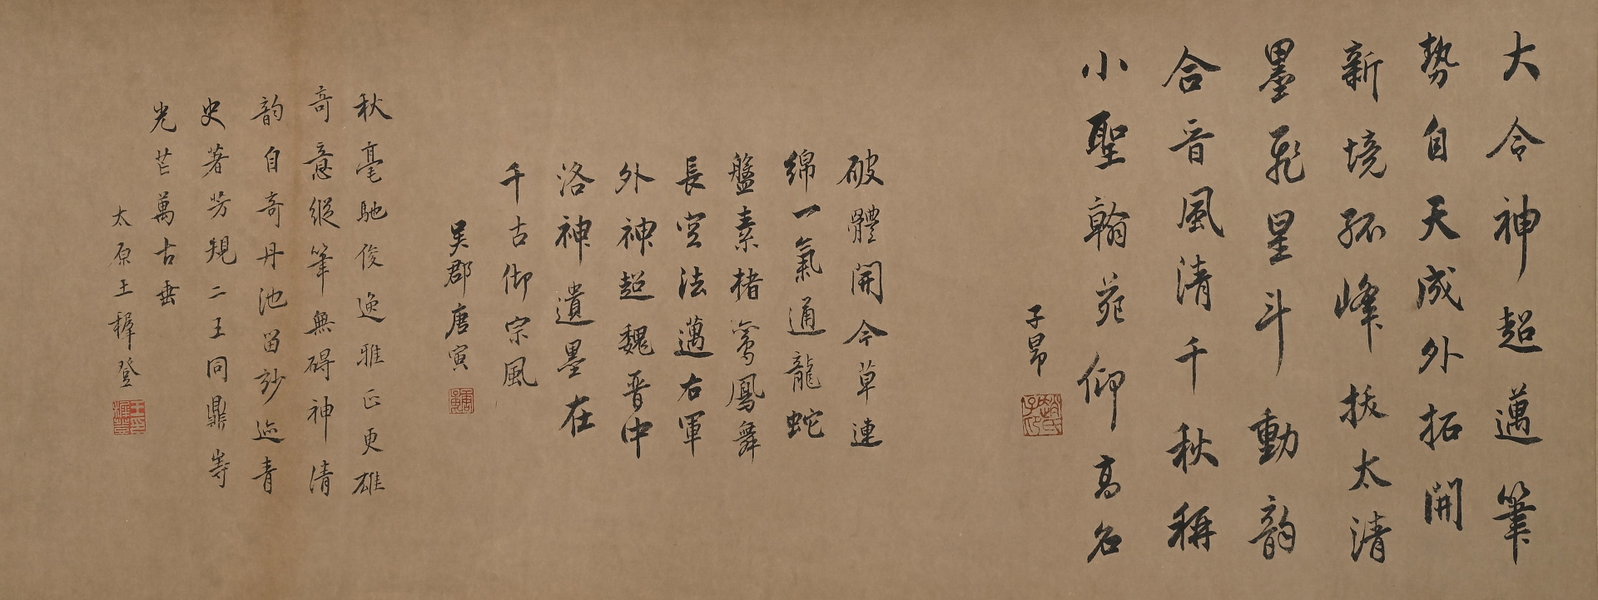 大令神超邁筆
勢自天成外拓開
新境孤峰拔太清
墨飛星斗動韵
合晉風清千秋稱
小聖翰苑仰高名
子昂
破體開今草連
綿一氣通龍蛇
盤素楮鸞鳳舞
長空法邁右軍
外神超魏晉中
洛神遺墨在
千古仰宗風
吳郡唐寅
唐寅
秋毫馳俊逸雅正更雄
奇意縱筆無碍神清
韵自奇丹池留妙迹青
史著芳規二王同鼎峙
光芒萬古垂
太原王穉登